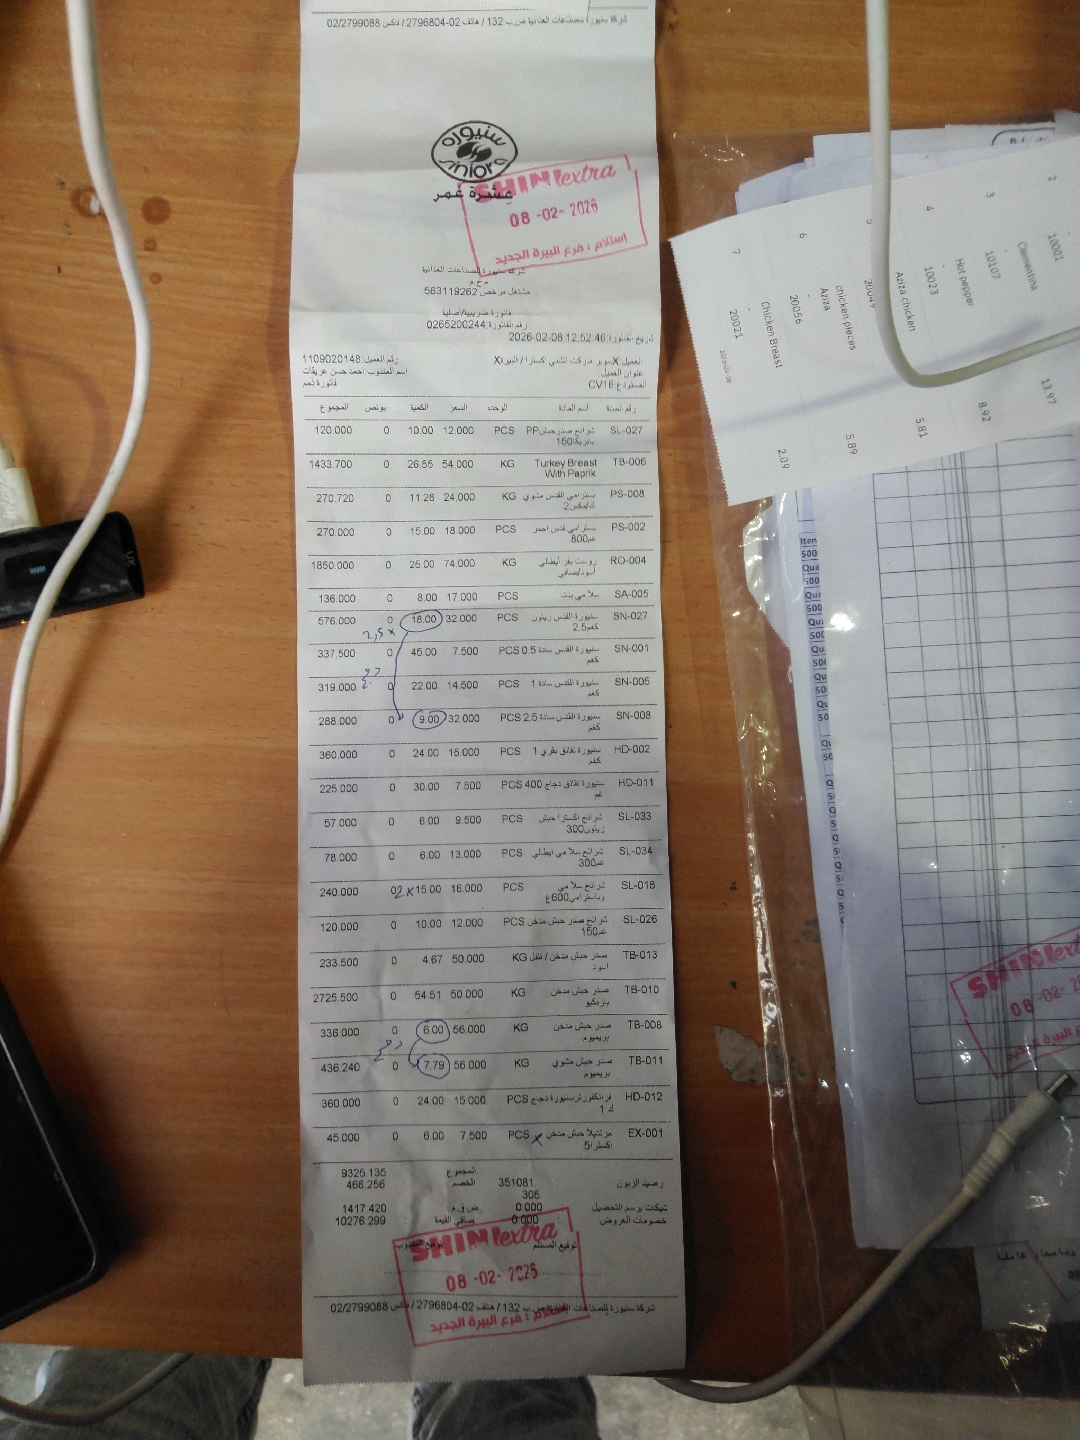 شركة سنيورة للصناعات الغذائية ص.ب 132 / هاتف 02-2796804 / فاكس 02/2799088
سنيورة
Siniora
عِشرة عُمر
SHINIextra
08-02-2026
استلام : فرع البيرة الجديد
شركة سنيورة للصناعات الغذائية
م.خ.م
مشتغل مرخص 563119262
فاتورة ضريبية/أصلية
رقم الفاتورة: 0265200244
تاريخ الفاتورة: 2026-02-08 12:52:46
العميل: Xسوبر ماركت الشني اكسترا / البيرةX
رقم العميل: 1109020148
عنوان العميل
اسم المندوب: احمد حسن عريقات
المستودع CV16
فاتورة ذمم
رقم المادة اسم المادة الوحده السعر الكمية بونص المجموع
SL-027 شرائح صدر حبش PP بابريكا150 PCS 12.000 10.00 0 120.000
TB-006 Turkey Breast With Paprik KG 54.000 26.55 0 1433.700
PS-008 بسترامي القدس مشوي KG 24.000 11.28 0 270.720
PS-002 بسترامي قدس احمر 800غم PCS 18.000 15.00 0 270.000
RO-004 روست بقر ايطالي KG 74.000 25.00 0 1850.000
SA-005 سلامي بنت PCS 17.000 8.00 0 136.000
SN-027 سنيورة القدس زيتون 2.5كغم PCS 32.000 18.00 0 576.000
2,5 x
SN-001 سنيورة القدس سادة 0.5 كغم PCS 7.500 45.00 0 337.500
SN-005 سنيورة القدس سادة 1 كغم PCS 14.500 22.00 0 319.000
SN-008 سنيورة القدس سادة 2.5 كغم PCS 32.000 9.00 0 288.000
HD-002 سنيورة نقانق بقري 1 كغم PCS 15.000 24.00 0 360.000
HD-011 سنيورة نقانق دجاج 400 غم PCS 7.500 30.00 0 225.000
SL-033 شرائح اكسترا حبش زيتون300 PCS 9.500 6.00 0 57.000
SL-034 شرائح سلامي ايطالي 300غم PCS 13.000 6.00 0 78.000
SL-018 شرائح سلامي وباسترامي600غ PCS 16.000 15.00 0 240.000
2 x
SL-026 شرائح صدر حبش مدخن 150غم PCS 12.000 10.00 0 120.000
TB-013 صدر حبش مدخن / فلفل اسود KG 50.000 4.67 0 233.500
TB-010 صدر حبش مدخن باربكيو KG 50.000 54.51 0 2725.500
TB-008 صدر حبش مدخن بريميوم KG 56.000 6.00 0 336.000
TB-011 صدر حبش مشوي بريميوم KG 56.000 7.79 0 436.240
HD-012 فرانكفورتر سنيورة دجاج 1 ك PCS 15.000 24.00 0 360.000
EX-001 مرتديلا حبش مدخن اكسترا5. PCS 7.500 6.00 0 45.000
x
المجموع 9325.135
رصيد الزبون 351081.305 الخصم 466.256
شيكات برسم التحصيل 0.000 ض.ق.م 1417.420
خصومات العروض 0.000 صافي القيمة 10276.299
توقيع المستلم توقيع المندوب
SHINIextra
08-02-2026
استلام : فرع البيرة الجديد
شركة سنيورة للصناعات الغذائية ص.ب 132 / هاتف 02-2796804 / فاكس 02/2799088
10001
Clementina 13.97
3
10107
Hot pepper 8.92
4
10023
Aziza chicken 5.81
5
20047
chicken pieces Aziza 5.89
6
20056
Chicken Breast 2.09
7
20021
SHINIextra
08-02-2
UK